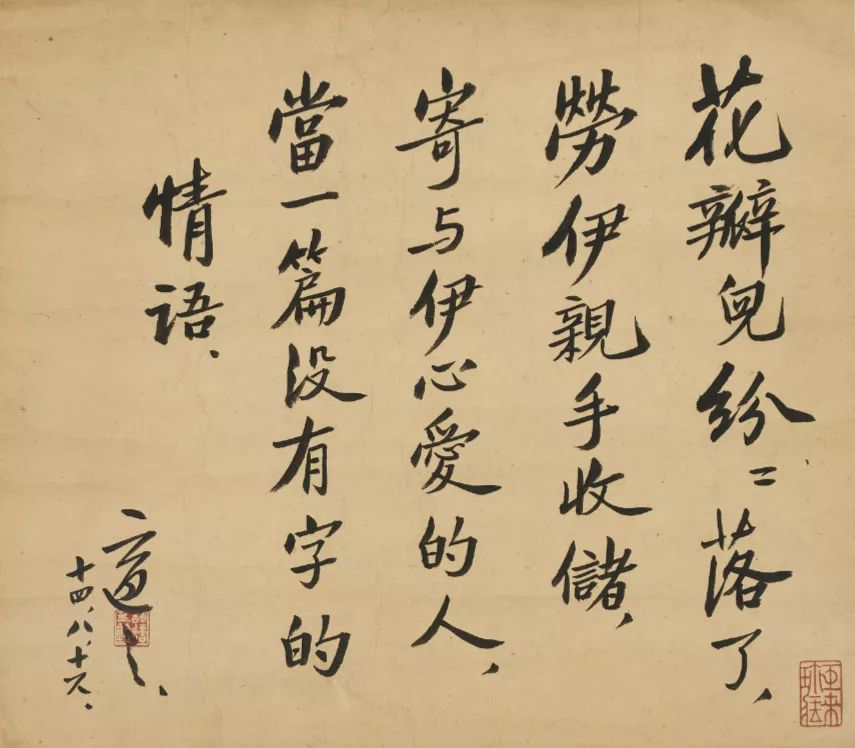 花瓣兒紛〻落了、
勞伊親手收儲、
寄与伊心愛的人、
當一篇没有字的
情語、
適之、
十四、八、十六、